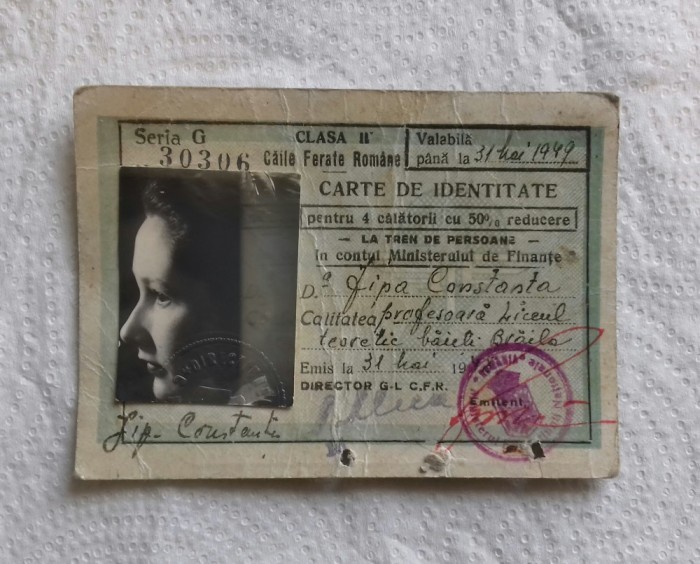 Seria G
30306
CLASA II^a
Căile Ferate Române
Valabilă
până la 31 Mai 1949
CARTE DE IDENTITATE
pentru 4 călătorii cu 50% reducere
— LA TREN DE PERSOANE —
în contul Ministerului de Finanțe
D.ª Jipa Constanta
Calitatea profesoară Liceul
teoretic băieți Brăila
Emis la 31 Mai 19
DIRECTOR G-L C.F.R.
Emitent,
ROMÂNIA
Jip. Constanta